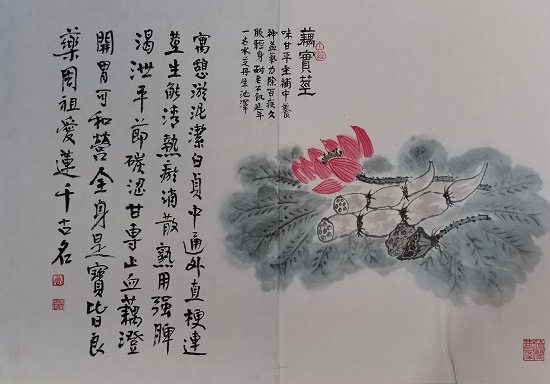 藕實莖
味甘平主補中養
神益氣力除百疾久
服輕身耐老不飢延年
一名水芝丹生池澤
寓憩淤泥潔白貞中通外直梗連
莖生能清熱瘀消散熟用強脾
渴泄平節碳涩甘專止血藕澄
開胃可和營全身是寶皆良
藥周祖愛蓮千古名